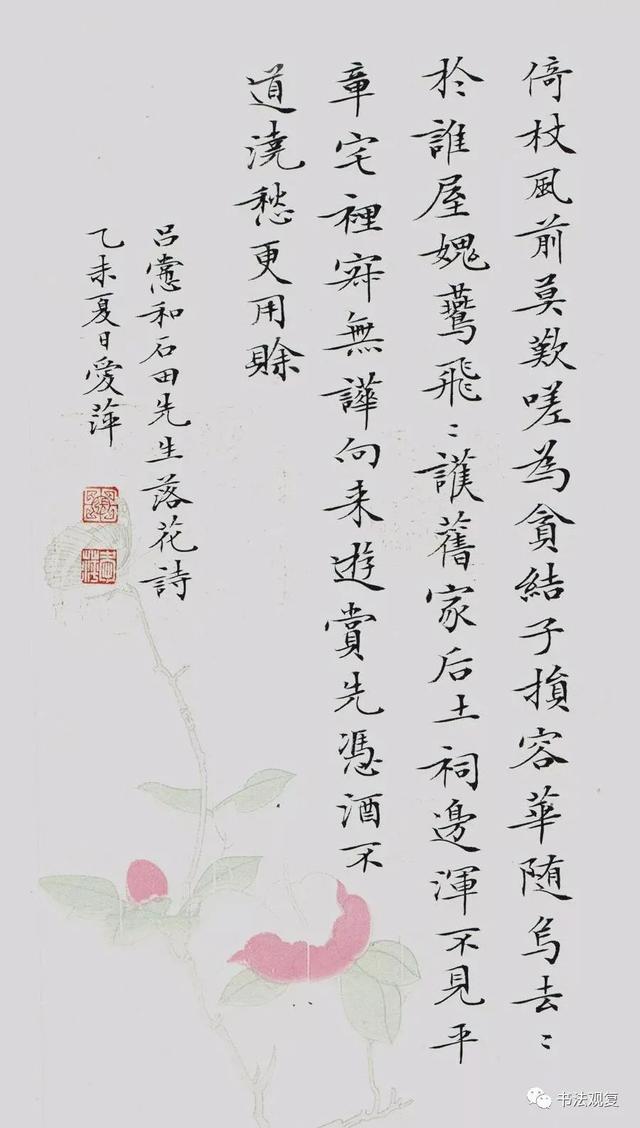 倚杖風前莫歎嗟為貪結子損容華随烏去〻
於誰屋媿鷰飛〻護舊家后土祠邊渾不見平
章宅裡寂無譁向来遊賞先憑酒不
道澆愁更用賖
吕㦂和石田先生落花詩
乙未夏日愛萍
书法观复